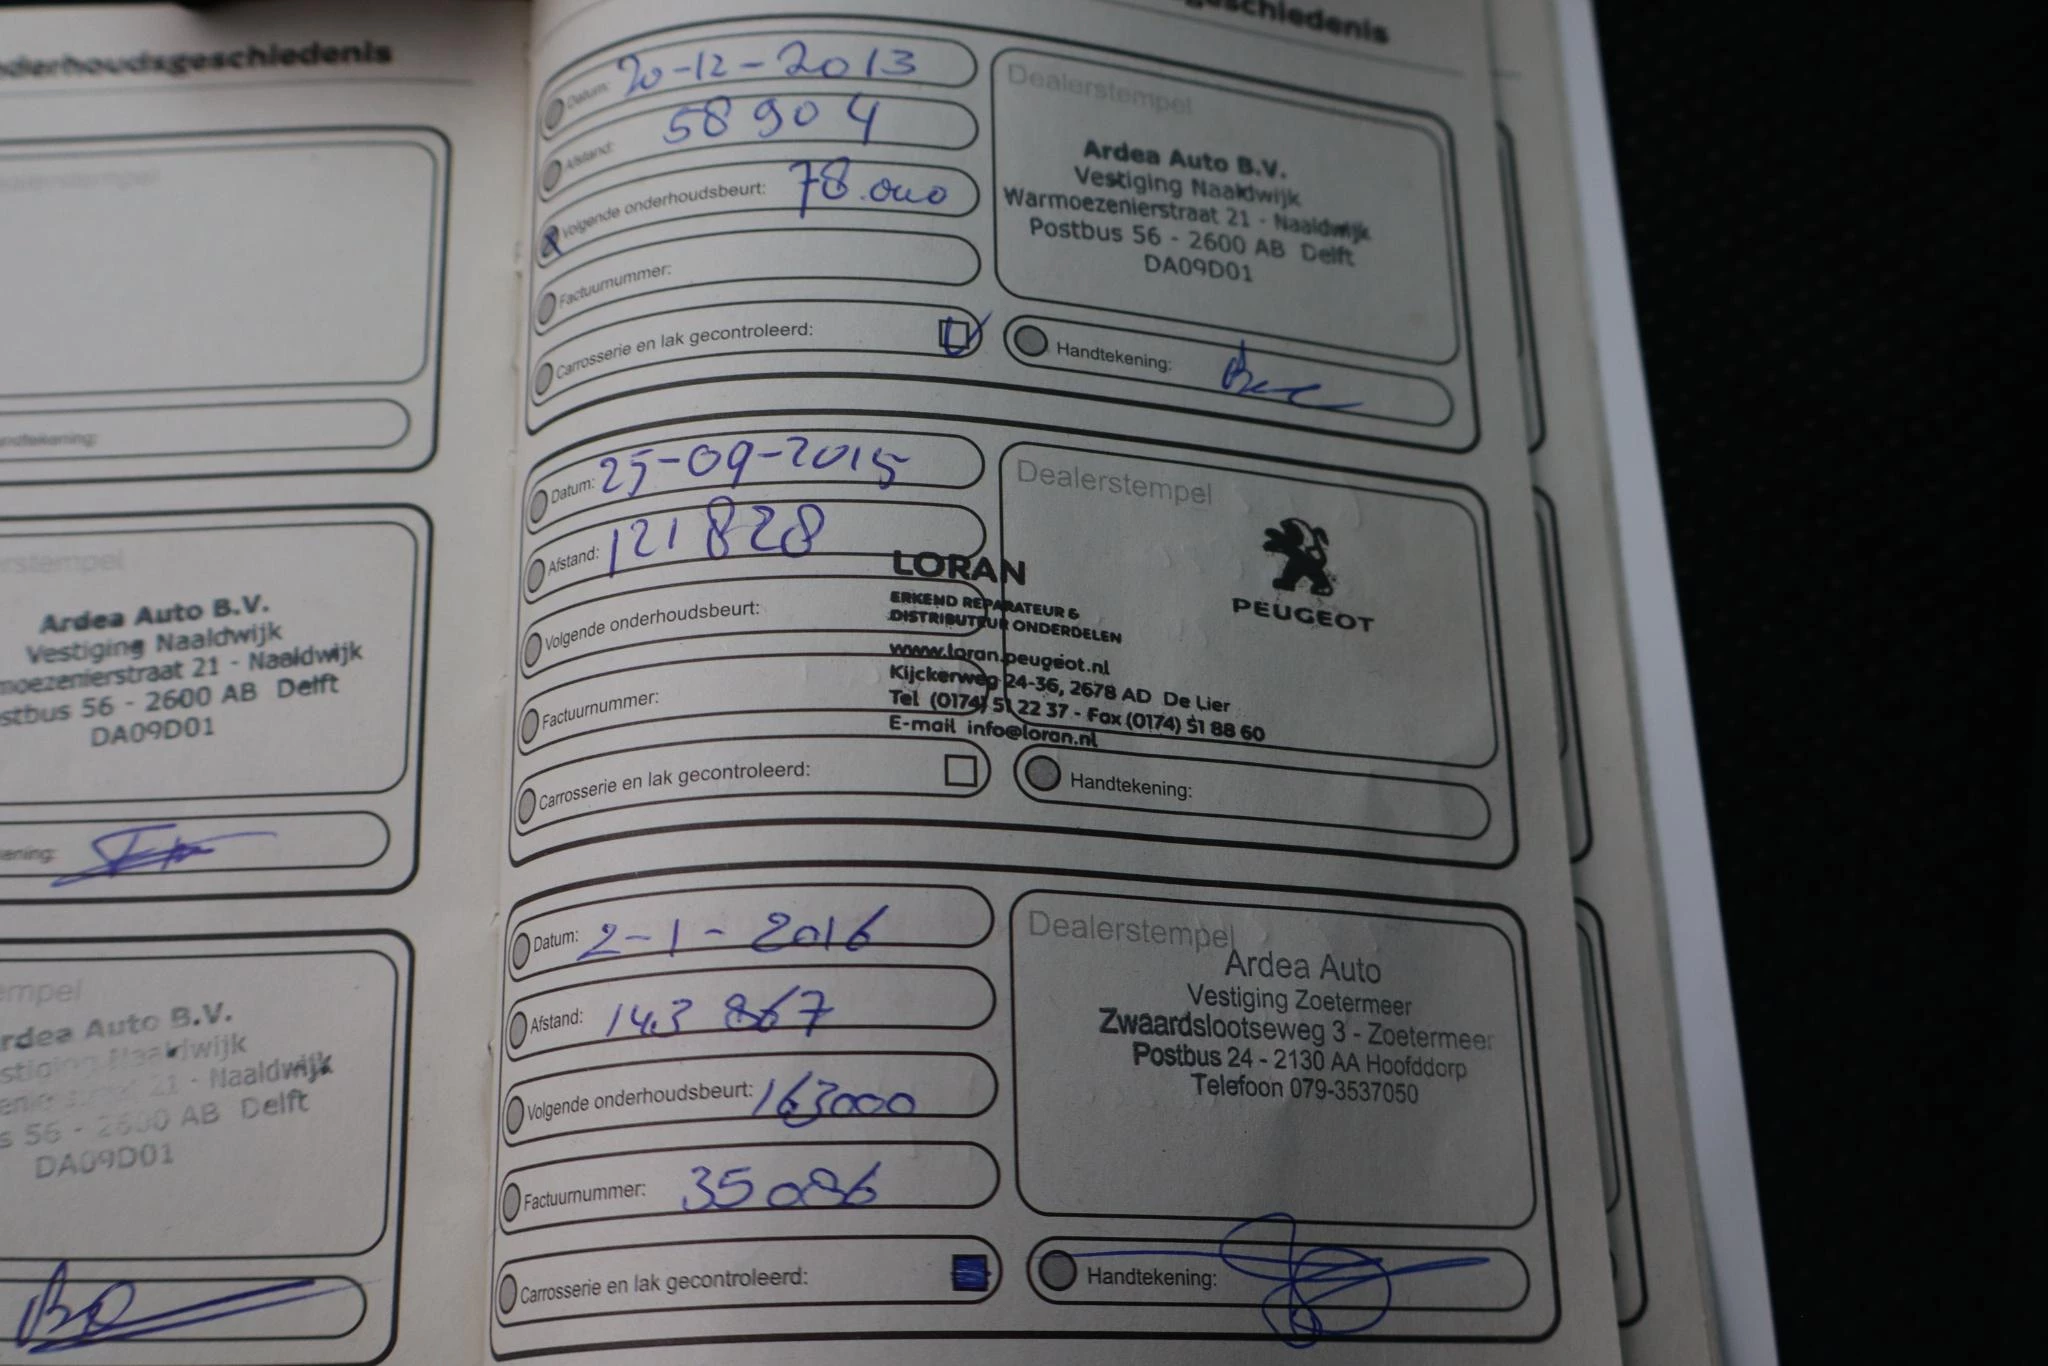 Dealerstempel
Ardea Auto B.V.
Vestiging Naaldwijk
21 - Naaldwijk
56 - 2600 AB Delft
DA09D01
Ardea Auto B.V.
Naaldwijk
21 - Naaldwijk
56 - 2600 AB Delft
DA09D01
Datum: 20-12-2013
Afstand: 58904
Volgende onderhoudsbeurt: 78.000
Factuurnummer:
Carrosserie en lak gecontroleerd:
Dealerstempel
Ardea Auto B.V.
Vestiging Naaldwijk
Warmoezenierstraat 21 - Naaldwijk
Postbus 56 - 2600 AB Delft
DA09D01
Handtekening:
Datum: 25-09-2015
Afstand: 121828
Volgende onderhoudsbeurt:
Factuurnummer:
Carrosserie en lak gecontroleerd:
Dealerstempel
PEUGEOT
LORAN
ERKEND REPARATEUR &
DISTRIBUTEUR ONDERDELEN
www.loran.peugeot.nl
Kijckerweg 24-36, 2678 AD De Lier
Tel (0174) 51 22 37 - Fax (0174) 51 88 60
E-mail info@loran.nl
Handtekening:
Datum: 2-1-2016
Afstand: 143 867
Volgende onderhoudsbeurt: 163000
Factuurnummer: 35086
Carrosserie en lak gecontroleerd:
Dealerstempel
Ardea Auto
Vestiging Zoetermeer
Zwaardslootseweg 3 - Zoetermeer
Postbus 24 - 2130 AA Hoofddorp
Telefoon 079-3537050
Handtekening: